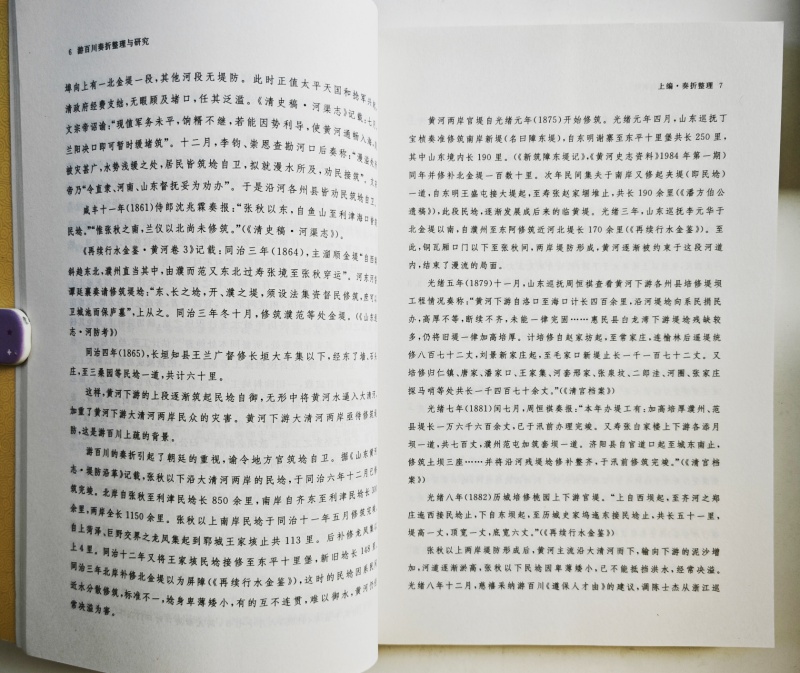 6 游百川奏折整理与研究
埠向上有一北金堤一段,其他河段无堤防。此时正值太平天国和捻军兴起,
清政府经费支绌,无暇顾及堵口,任其泛滥。《清史稿·河渠志》记载:七
文宗帝诏谕:“现值军务未平,饷糈不继,若能因势利导,使黄河通畅入海,
兰阳决口即可暂缓堵筑”。十二月,李钧、崇恩查勘河口后奏称:“漫溢
被灾甚广,水势浅缓之处,居民皆筑埝自卫,拟就漫水所及,劝民接筑”。
帝乃“令直隶、河南、山东督抚妥为劝办”。于是沿河各州县皆劝民筑埝自卫。
咸丰十一年(1861)侍郎沈兆霖奏报:“张秋以东,自鱼山至利津海口
民埝。”“惟张秋之南,兰仪以北尚未修筑。”(《清史稿·河渠志》)。
《再续行水金鉴·黄河卷3》记载:同治三年(1864),主溜顺金堤“自
斜趋东北,濮州直当其中,由濮而范又东北过寿张境至张秋穿运”。河东
谭廷襄奏请修筑堤埝:“东、长之埝,开、濮之堤,须设法集资督民修筑,
卫城池而保庐墓”,上从之。同治三年冬十月,修筑濮范等处金堤。(《山东
志·河防考》)
同治四年(1865),长垣知县王兰广督修长垣大车集以下,经东了墙、
庄,至三桑园等民埝一道,共计六十里。
这样,黄河下游的上段逐渐筑起民埝自御,无形中将黄河水逼入大清河,
加重了黄河下游大清河两岸民众的灾害。黄河下游大清河两岸亟待修筑
防,这是游百川上疏的背景。
游百川的奏折引起了朝廷的重视,谕令地方官筑埝自卫。据《山东黄河
志·堤防沿革》记载,张秋以下沿大清河两岸的民埝,于同治六年十二月
筑完竣。北岸自张秋至利津民埝长850余里,南岸自齐东至利津民埝长300
余里,两岸全长1150余里。张秋以上南岸民埝于同治十一年五月修筑完竣,
自上菏泽、巨野交界之龙凤集起到郓城王家垓止共113里。后补修龙凤集
上4里。同治十二年又将王家垓民埝接修至东平十里堡,新旧埝长148里。
同治三年北岸补修北金堤以为屏障(《再续行水金鉴》),这时的民埝因系
近水分散修筑,标准不一,埝身卑薄矮小,有的互不连贯,难以御水,黄河仍
常决溢为害。
上编·奏折整理 7
黄河两岸官堤自光绪元年(1875)开始修筑。光绪元年四月,山东巡抚丁
宝桢奏准修筑南岸新堤(名曰障东堤),自东明谢寨至东平十里堡共长250里,
其中山东境内长190里。(《新筑障东堤记》,《黄河史志资料》1984年第一期)
同年并修补北金堤一百数十里。次年民间集夫于南岸又修起夹堤(即民埝)
一道,自东明王盛屯接大堤起,至寿张赵家堌堆止,共长190余里(《潘方伯公
遗稿》),此段民埝,逐渐发展成后来的临黄堤。光绪三年,山东巡抚李元华于
北金堤以南,自濮州至东阿修筑近河北堤长170余里(《再续行水金鉴》)。至
此,铜瓦厢口门以下至张秋间,两岸堤防形成,黄河逐渐被约束于这段河道
内,结束了漫流的局面。
光绪五年(1879)十一月,山东巡抚周恒祺查看黄河下游各州县培修堤坝
工程情况奏称:“黄河下游自洛口至海口计长四百余里,沿河堤埝向系民捐民
办,高厚不等,断续不齐,未能一律完固……惠民县白龙湾下游堤埝残缺较
多,仍将旧堤一律加高培厚。计培修自赵家坊起,至常家庄,连榆林后遥堤统
修八百七十二丈,刘景新家庄起,至毛家口新堤止长一千一百七十二丈。又
培修归仁镇、唐家、潘家口、王家集、河套邢家、张泉坟、二郎洼、河圈、张家庄
探马明等处共长一千四百七十余丈。”(《清宫档案》)
光绪七年(1881)闰七月,周恒祺奏报:“本年办堤工有:加高培厚濮州、范
县堤长一万六千六百余丈,已于汛前办理完竣。又寿张白家楼上下游各添月
坝一道,共七百丈,濮州范屯加筑套坝一道。济阳县自官道口起至城东南止,
修筑土坝三座……并将沿河残堤埝修补整齐,于汛前修筑完竣。”(《清宫档
案》)
光绪八年(1882)历城培修桃园上下游官堤。“上自西坝起,至齐河之郑
庄迤西接民埝止,下自东坝起,至历城史家坞迤东接民埝止,共长五十一里,
堤高一丈,顶宽一丈,底宽六丈。”(《再续行水金鉴》)
张秋以上两岸堤防形成后,黄河主流沿大清河而下,输向下游的泥沙增
加,河道逐渐淤高,张秋以下民埝因卑薄矮小,已不能抵挡洪水,经常决溢。
光绪八年十二月,慈禧采纳游百川《遵保人才由》的建议,调陈士杰从浙江巡